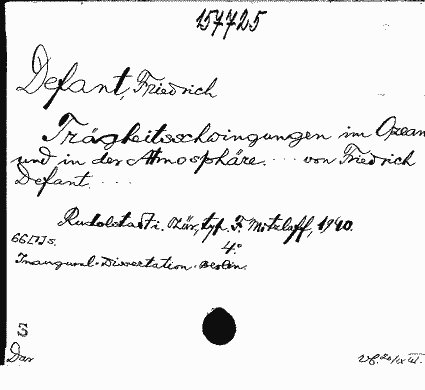 157725
Defant, Friedrich
Trägheitsschwingungen im Ozean
und in der Atmosphäre. ... von Friedrich
Defant. ...
Rudolstadt i. Thür., typ. F. Mitzlaff, 1940.
66[1]s. 4°
Inaugural-Dissertation. Berlin.
S
Dar